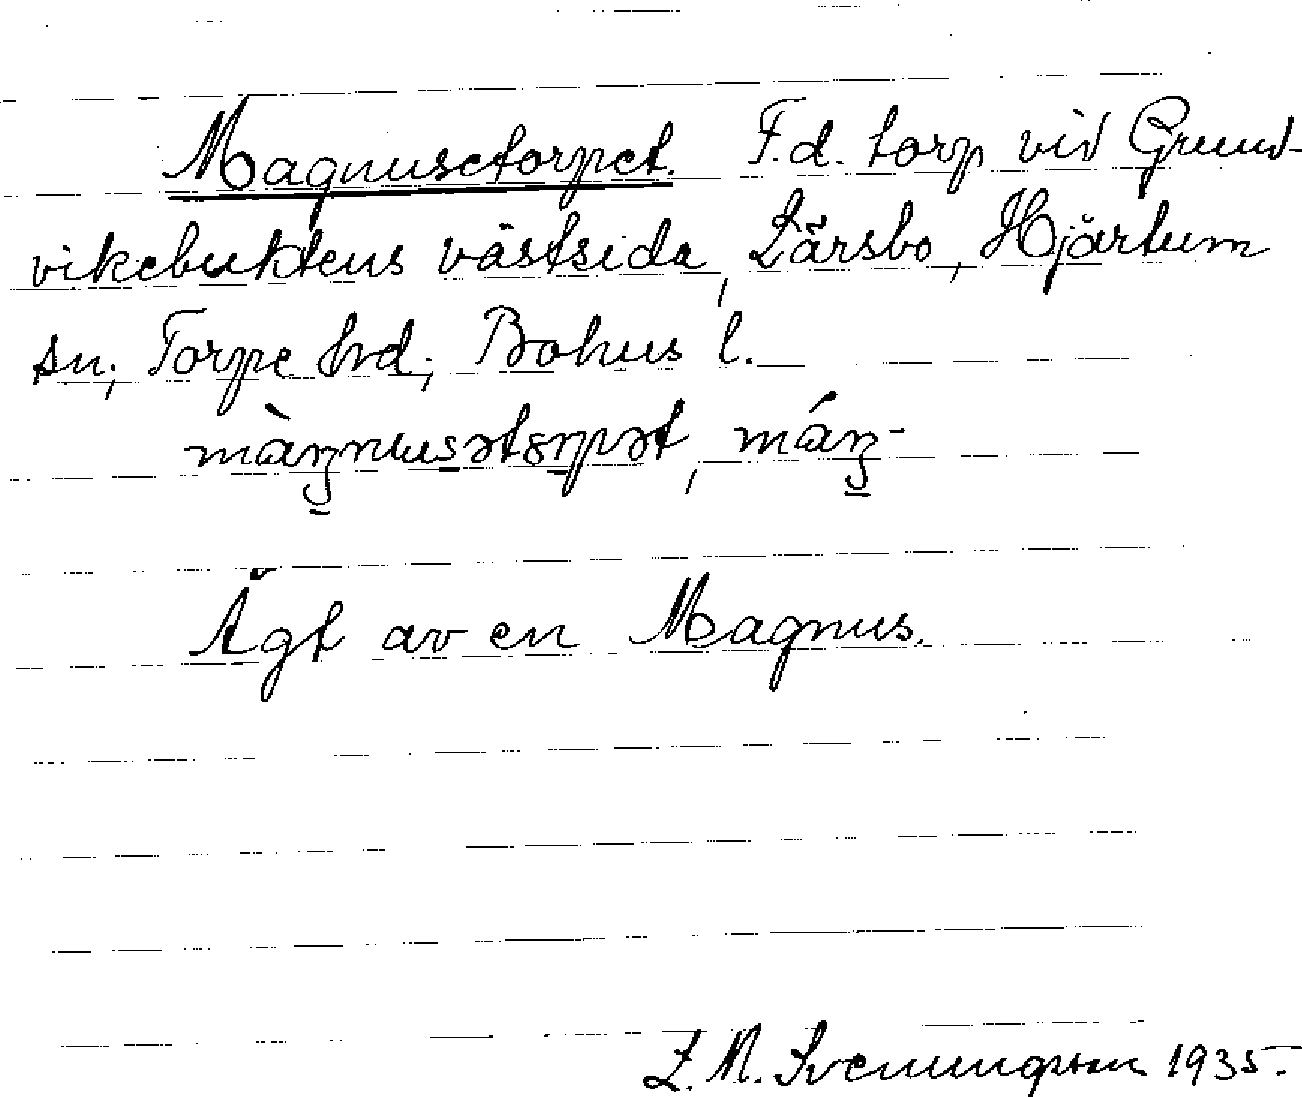 Magnusetorpet. F.d. torp vid Grund-
vikebuktens västsida, Lärsbo, Hjärtum
sn; Torpe hrd; Bohus l.
màŋnusətɔrpət, máŋ-
Ägt av en Magnus.
1935.